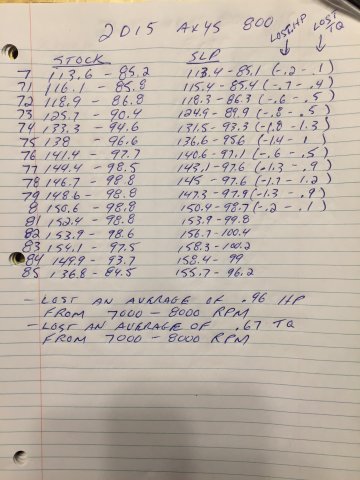 2015 AXYS 800
LOST HP
LOST TQ
STOCK SLP
7 113.6 - 85.2 113.4 - 85.1 (-.2 - .1)
71 116.1 - 85.8 115.4 - 85.4 (-.7 - .4)
72 118.9 - 86.8 118.3 - 86.3 (-.6 - .5)
73 125.7 - 90.4 124.9 - 89.9 (-.8 - .5)
74 133.3 - 94.6 131.5 - 93.3 (-1.8 - 1.3)
75 138 - 96.6 136.6 - 95.6 (-1.4 - 1)
76 141.4 - 97.7 140.6 - 97.1 (-.6 - .5)
77 144.4 - 98.5 143.1 - 97.6 (-1.3 - .9)
78 146.7 - 98.8 145 - 97.6 (-1.7 - 1.2)
79 148.6 - 98.8 147.3 - 97.9 (-1.3 - .9)
8 150.6 - 98.8 150.4 - 98.7 (-.2 - .1)
81 152.4 - 98.8 153.9 - 99.8
82 153.9 - 98.6 156.7 - 100.4
83 154.1 - 97.5 158.3 - 100.2
84 149.9 - 93.7 158.4 - 99
85 136.8 - 84.5 155.7 - 96.2
- LOST AN AVERAGE OF .96 HP
FROM 7000 - 8000 RPM
- LOST AN AVERAGE OF .67 TQ
FROM 7000 - 8000 RPM